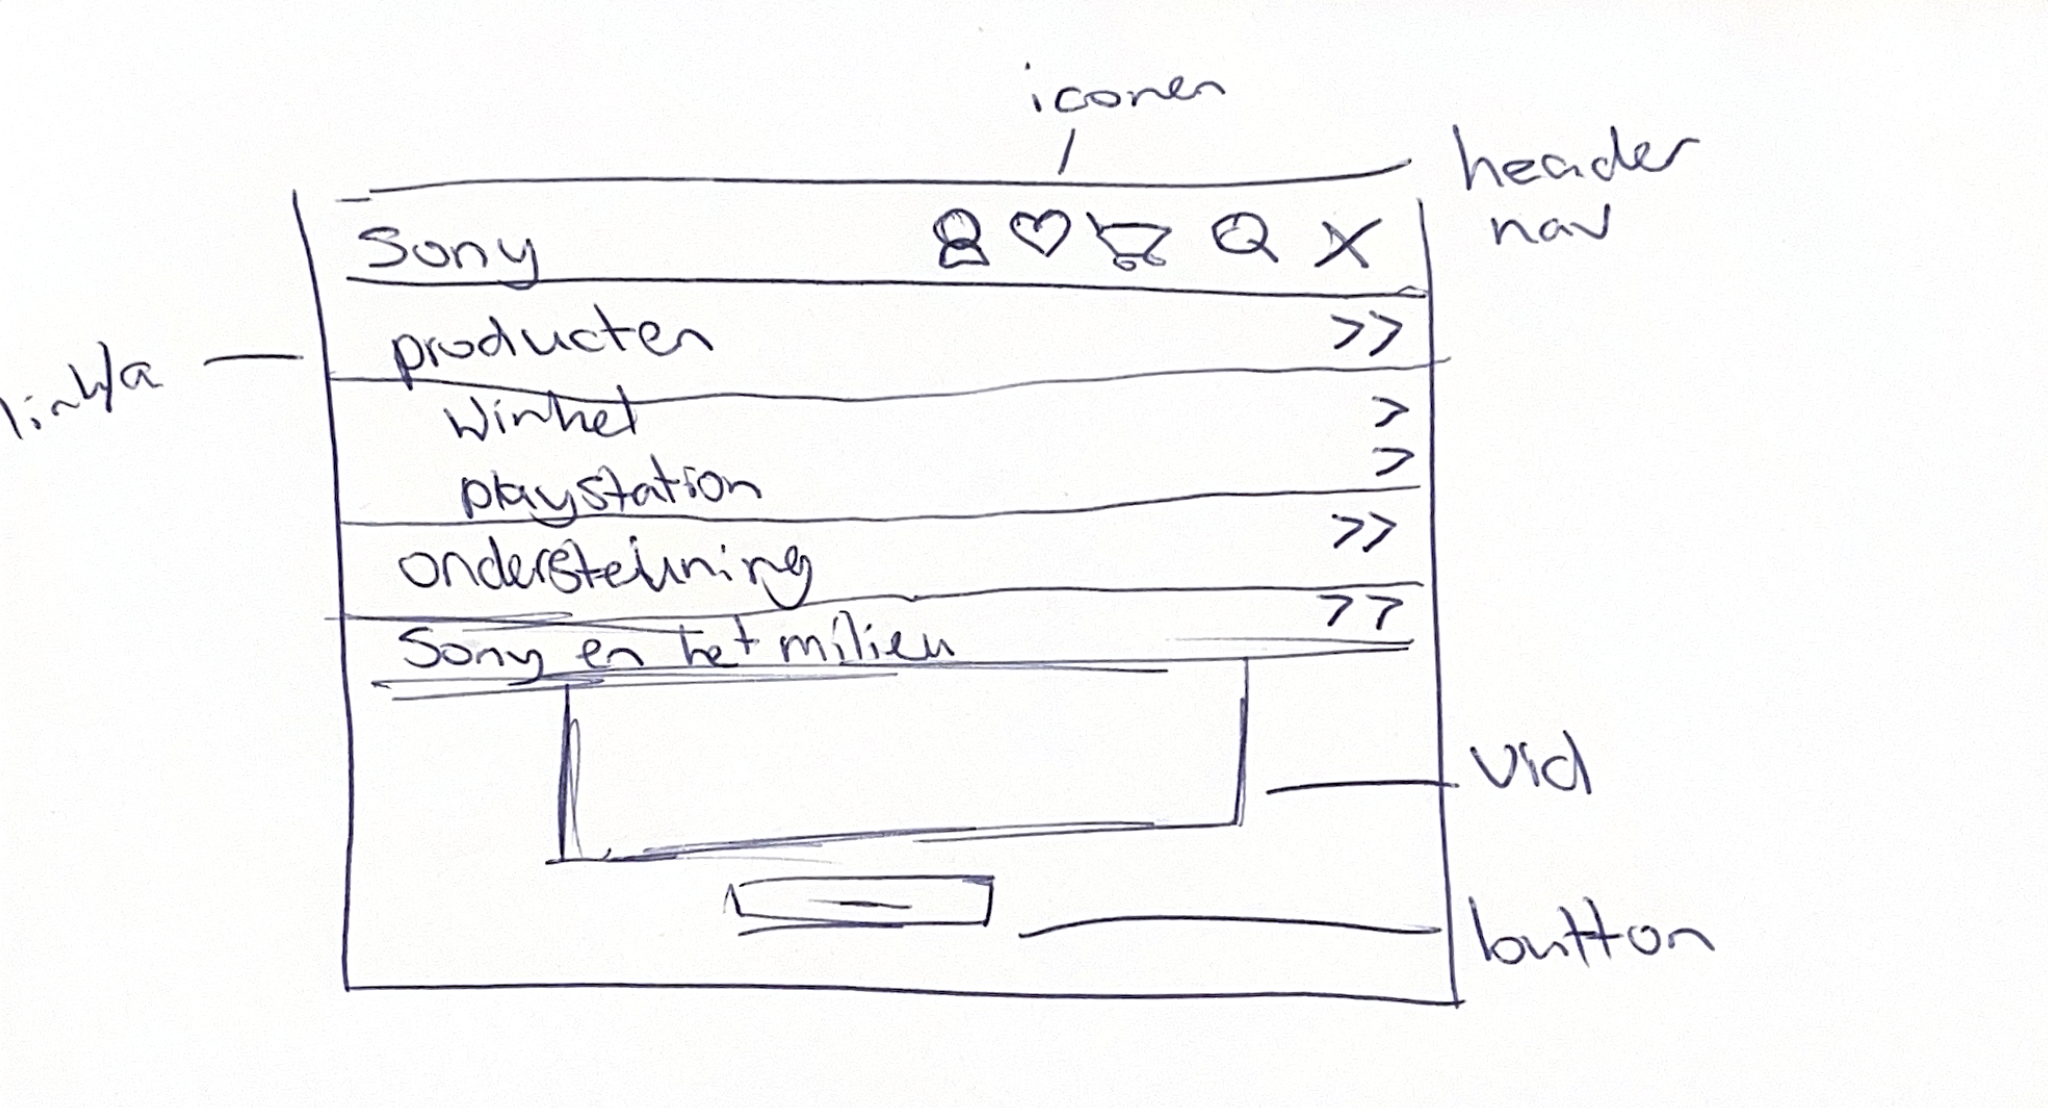 iconen
header
nav
Sony X
producten >>
link/a
winkel >
playstation >
ondersteuning >>
Sony en het milieu >>
vid
button